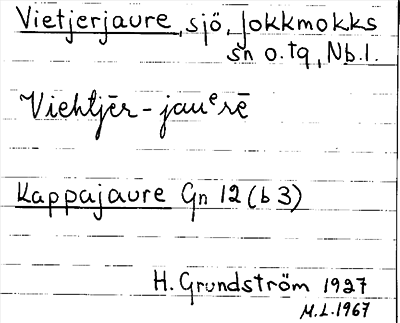 Vietjerjaure, sjö, Jokkmokks
sn o. tq, Nb.l.
Viehtjēr-jauᵉrē
Kappajaure Gn 12 (b 3)
H. Grundström 1927
M.L. 1967